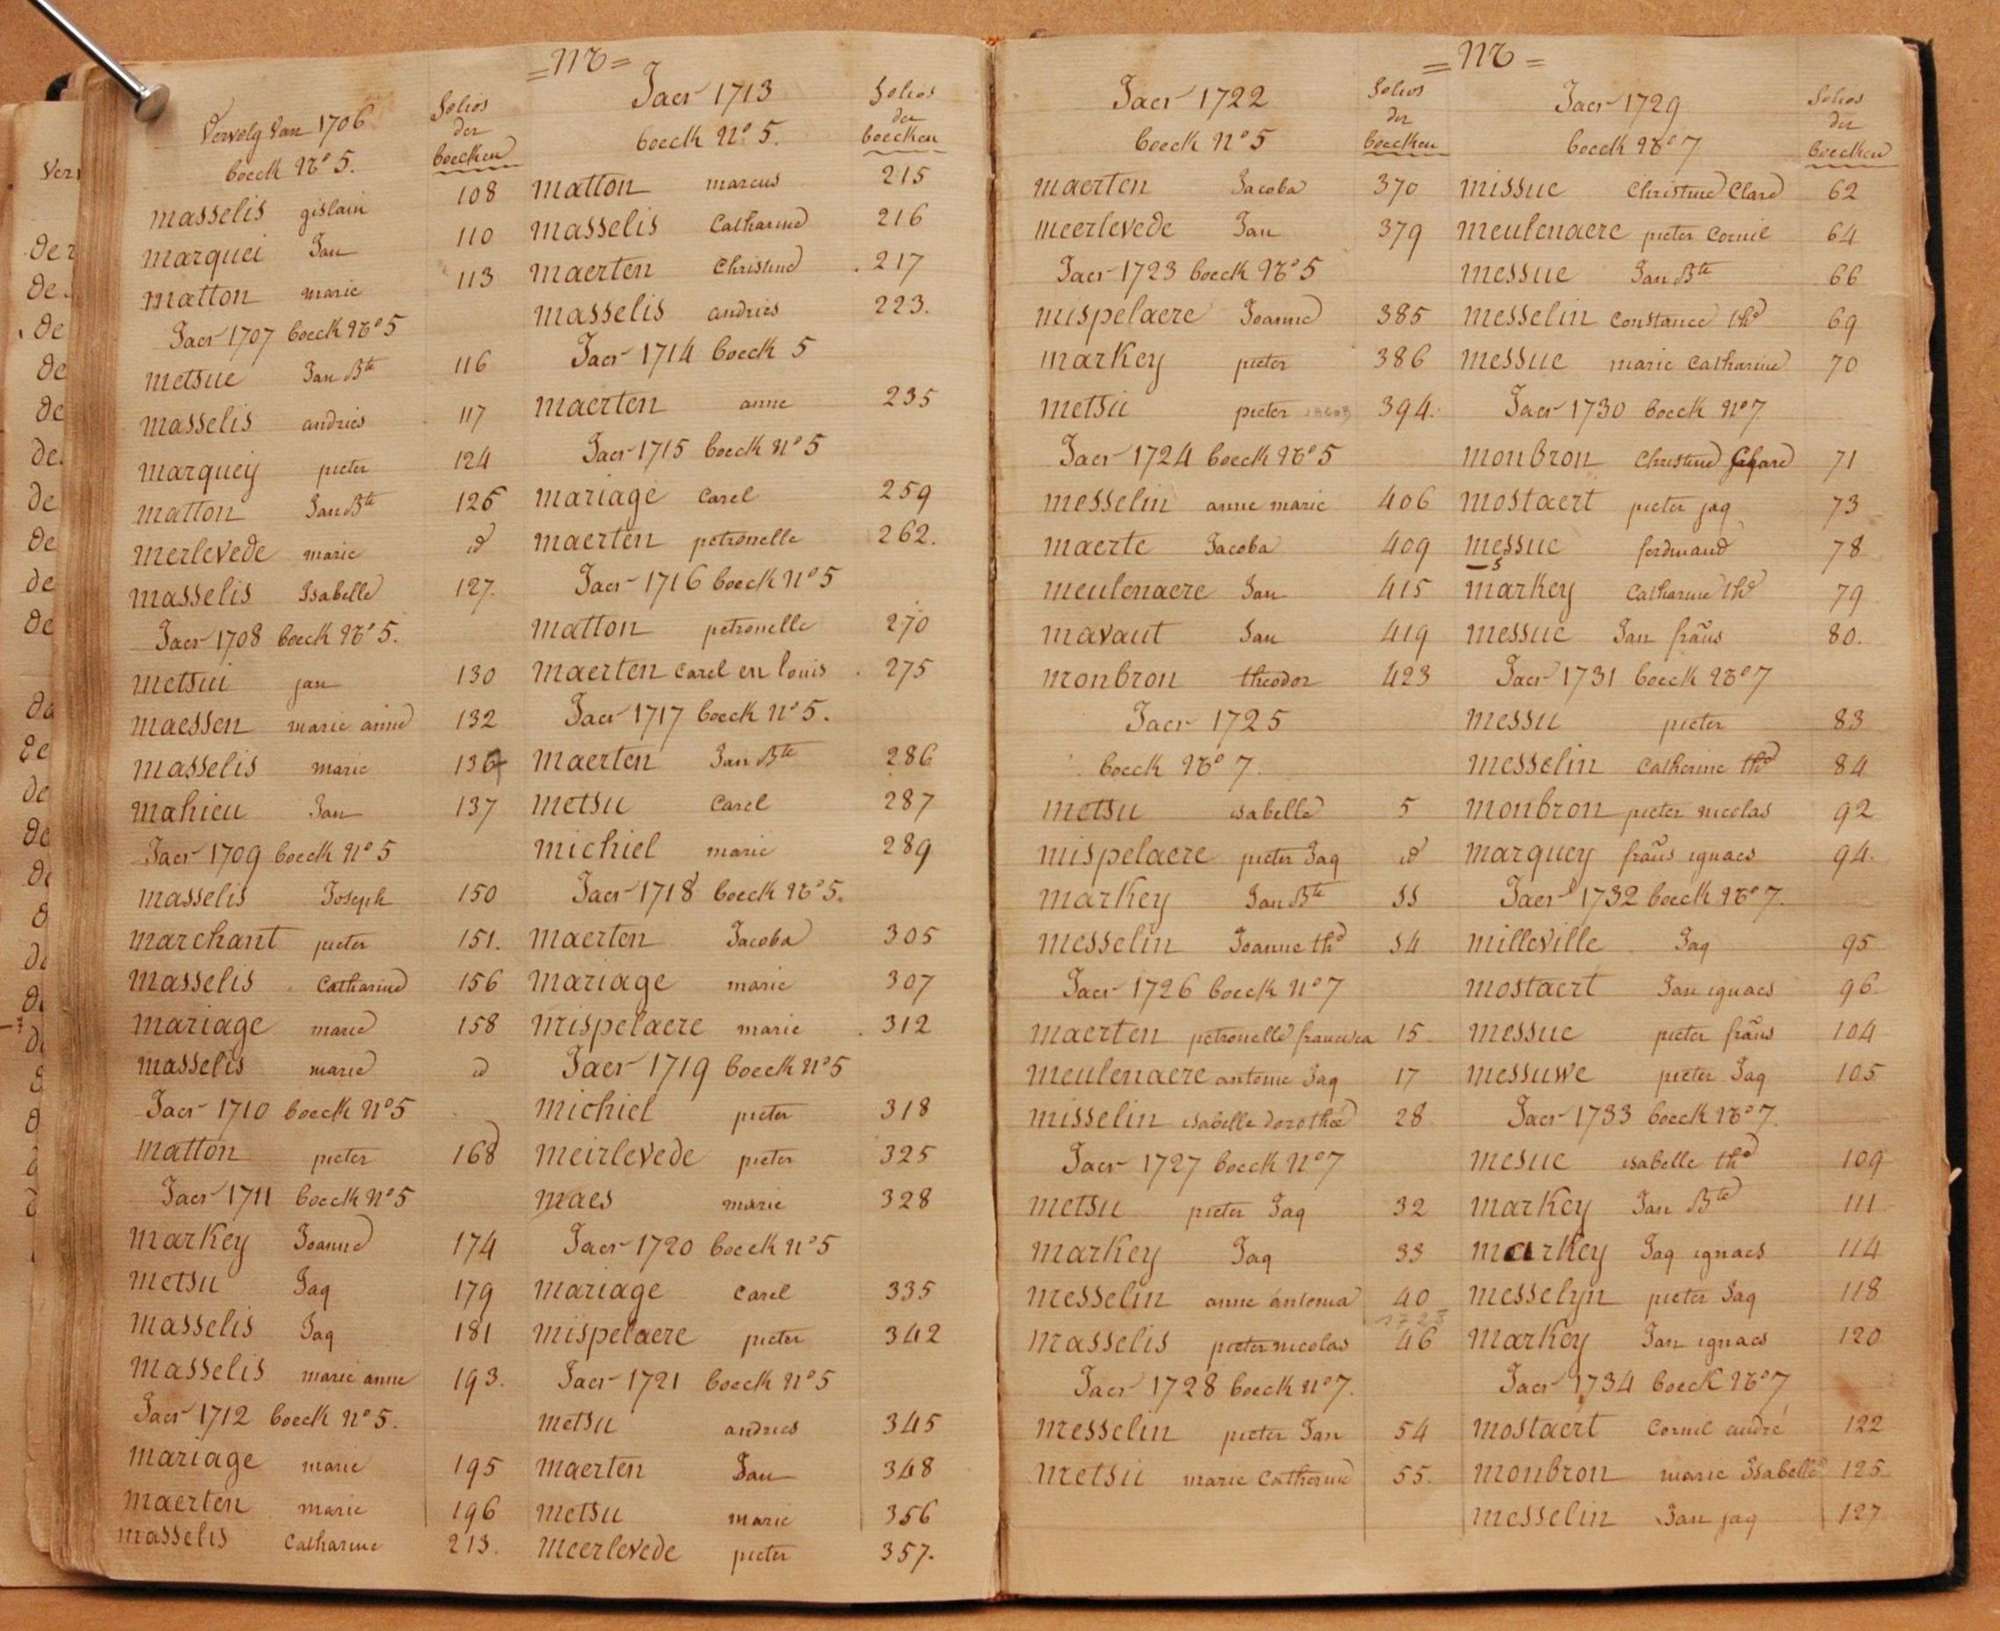 = M =
Vervolg van 1706
boeck No 5.
folios
der
boecken
masselis gislain 108
marquei Jan 110
matton marie 113
Jaer 1707 boeck No 5
metsue Jan Bte 116
masselis andries 117
marqueij pieter 124
matton Jan Bte 126
merlevede marie id
masselis Isabelle 127.
Jaer 1708 boeck No 5.
metsui jan 130
maessen marie anne 132
masselis marie
mahieu Jan 137
Jaer 1709 boeck No 5
masselis Joseph 150
marchant pieter 151.
masselis Catharine 156
mariage marie 158
masselis marie id
Jaer 1710 boeck No 5
matton pieter 168
Jaer 1711 boeck No 5
markey Joanne 174
metsu Jaq 179
masselis Jaq 181
masselis marie anne 193.
Jaer 1712 boeck No 5.
mariage marie 195
maerten marie 196
masselis Catharine 213.
Jaer 1713
boeck No 5.
folios
der
boecken
matton marcus 215
masselis Catharine 216
maerten Christine 217
masselis andries 223.
Jaer 1714 boeck 5
maerten anne 235
Jaer 1715 boeck No 5
mariage Carel 259
maerten petronelle 262.
Jaer 1716 boeck No 5
matton petronelle 270
maerten Carel en louis 275
Jaer 1717 boeck No 5.
maerten Jan Bte 286
metsu Carel 287
michiel marie 289
Jaer 1718 boeck No 5.
maerten Jacoba 305
mariage marie 307
mispelaere marie 312
Jaer 1719 boeck No 5
michiel pieter 318
meirlevede pieter 325
maes marie 328
Jaer 1720 boeck No 5
mariage Carel 335
mispelaere pieter 342
Jaer 1721 boeck No 5
metsu andries 345
maerten Jan 348
metsu marie 356
meerlevede pieter 357.
= M =
Jaer 1722
boeck No 5
folios
der
boecken
maerten Jacoba 370
meerlevede Jan 379
Jaer 1723 boeck No 5
mispelaere Joanne 385
markey pieter 386
metsu pieter 394.
Jaer 1724 boeck No 5
messelin anne marie 406
maerte Jacoba 409
meulenaere Jan 415
mavaut Jan 419
monbron theodor 423
Jaer 1725
boeck No 7.
metsu isabelle 5
mispelaere pieter Jaq id
markey Jan Bte 11
messelin Joanne thd 14
Jaer 1726 boeck No 7
maerten petronelle francisca 15
meulenaere antoine Jaq 17
misselin isabelle dorothee 28
Jaer 1727 boeck No 7
metsu pieter Jaq 32
markey Jaq 33
messelin anne antonia 40
masselis pieter nicolas 46
Jaer 1728 boeck no 7.
messelin pieter Jan 54
metsu marie Catherine 55.
Jaer 1729
boeck No 7
folios
der
boecken
missue Christine Clare 62
meulenaere pieter Cornil 64
messue Jan Bte 66
messelin Constance thd 69
messue marie Catharine 70
Jaer 1730 boeck No 7
monbron Christine 71
mostaert pieter jaq 73
messue ferdinand 78
markey Catharine thd 79
messue Jan frans 80.
Jaer 1731 boeck No 7
messu pieter 83
messelin Catherine thd 84
monbron pieter nicolas 92
marquey frans ignaes 94.
Jaer 1732 boeck No 7.
milleville Jaq 95
mostaert Jan ignaes 96
messue pieter frans 104
messuwe pieter Jaq 105
Jaer 1733 boeck No 7.
mesue isabelle thd 109
markey Jan Bte 111
markey Jaq ignaes 114
messelyn pieter Jaq 118
markey Jan ignaes 120
Jaer 1734 boeck No 7
mostaert Cornil andré 122
monbron marie Isabelle 125
messelin Jan jaq 127